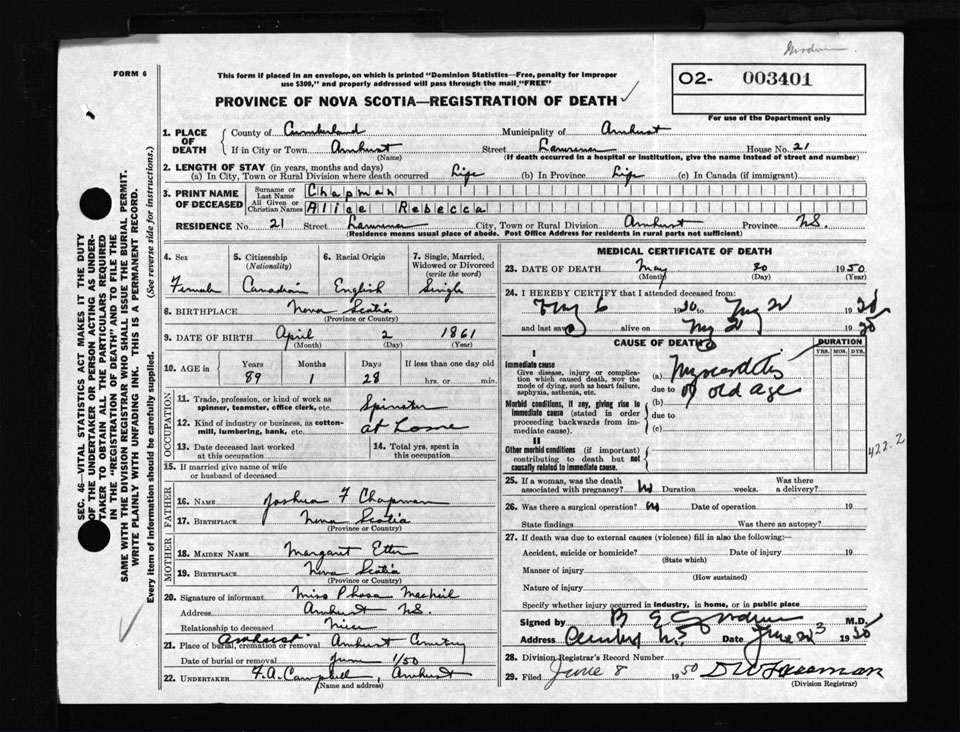 Goodwin.
FORM 6
This form if placed in an envelope, on which is printed "Dominion Statistics—Free, penalty for improper
use $300," and properly addressed will pass through the mail "FREE"
O2- 003401
PROVINCE OF NOVA SCOTIA—REGISTRATION OF DEATH ✓
For use of the Department only
1. PLACE OF DEATH County of Cumberland Municipality of Amherst
If in City or Town Amherst Street Lawrence House No. 21
(Name) (If death occurred in a hospital or institution, give the name instead of street and number)
2. LENGTH OF STAY (in years, months and days)
(a) In City, Town or Rural Division where death occurred Life (b) In Province Life (c) In Canada (if immigrant)
3. PRINT NAME OF DECEASED Surname or Last Name Chapman
All Given or Christian Names Alice Rebecca
RESIDENCE No. 21 Street Lawrence City, Town or Rural Division Amherst Province N.S.
(Residence means usual place of abode. Post Office Address for residents in rural parts not sufficient)
4. Sex 5. Citizenship (Nationality) 6. Racial Origin 7. Single, Married, Widowed or Divorced (write the word)
Female Canadian English Single
8. BIRTHPLACE Nova Scotia
(Province or Country)
9. DATE OF BIRTH April 2 1861
(Month) (Day) (Year)
10. AGE in Years Months Days If less than one day old
89 1 28 hrs. or min.
OCCUPATION
11. Trade, profession, or kind of work as
spinner, teamster, office clerk, etc. Spinster
12. Kind of industry or business, as cotton-
mill, lumbering, bank, etc. at Home
13. Date deceased last worked
at this occupation
14. Total yrs. spent in
this occupation
15. If married give name of wife
or husband of deceased
FATHER
16. NAME Joshua F Chapman
17. BIRTHPLACE Nova Scotia
(Province or Country)
MOTHER
18. MAIDEN NAME Margaret Etter
19. BIRTHPLACE Nova Scotia
(Province or Country)
20. Signature of informant Miss
Address Amherst N.S.
Relationship to deceased Niece
21. Place of burial, cremation or removal Amherst Amherst Cemetery
Date of burial or removal June 1/50
22. UNDERTAKER F.A. Campbell, Amherst
(Name and address)
MEDICAL CERTIFICATE OF DEATH
23. DATE OF DEATH May 30 1950
(Month) (Day) (Year)
24. I HEREBY CERTIFY that I attended deceased from:
6 1950 19
and last saw alive on 19
CAUSE OF DEATH DURATION
YRS. MOS. DYS.
I
Immediate cause
Give disease, injury or complica-
tion which caused death, NOT the
mode of dying, such as heart failure,
asphyxia, asthenia, etc.
(a) Myocarditis
due to
of old age
Morbid conditions, if any, giving rise to
immediate cause (stated in order
proceeding backwards from im-
mediate cause).
(b)
due to
(c)
II
Other morbid conditions (if important)
contributing to death but not
causally related to immediate cause.
422.2
25. If a woman, was the death
associated with pregnancy? Duration weeks. Was there
a delivery?
26. Was there a surgical operation? Date of operation 19
State findings Was there an autopsy?
27. If death was due to external causes (violence) fill in also the following:—
Accident, suicide or homicide? Date of injury 19
(State which)
Manner of injury
(How sustained)
Nature of injury
Specify whether injury occurred in industry, in home, or in public place
Signed by M.D.
Address N.S Date June 3 1950
28. Division Registrar's Record Number
29. Filed June 8 1950
(Division Registrar)
SEC. 46—VITAL STATISTICS ACT MAKES IT THE DUTY
OF THE UNDERTAKER OR PERSON ACTING AS UNDER-
TAKER TO OBTAIN ALL THE PARTICULARS REQUIRED
IN THE "REGISTRATION OF DEATH" AND TO FILE THE
SAME WITH THE DIVISION REGISTRAR WHO SHALL ISSUE THE BURIAL PERMIT.
WRITE PLAINLY WITH UNFADING INK. THIS IS A PERMANENT RECORD.
Every item of information should be carefully supplied. (See reverse side for instructions.)